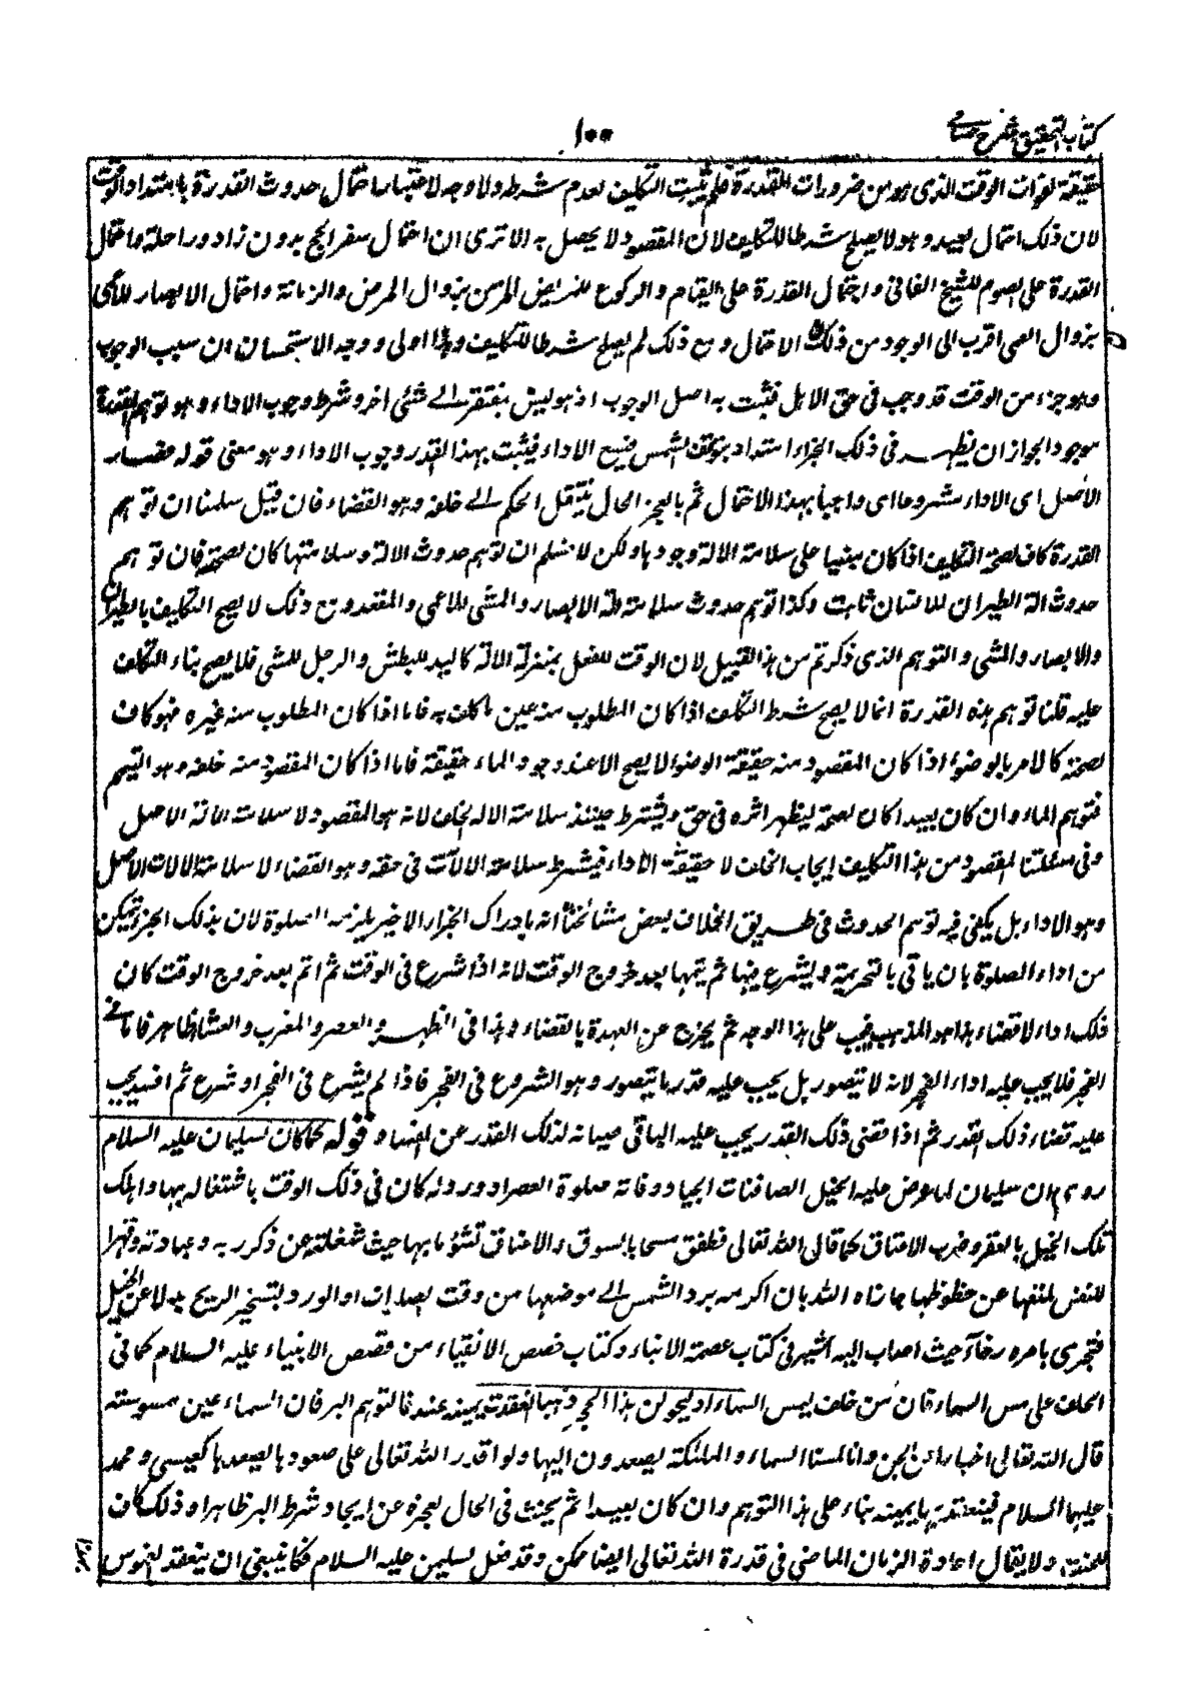 كتاب التحقيق شرح حسامى
١٠٠
حقيقة لفوات الوقت الذى هو من ضرورات القدرة فلم يثبت التكليف لعدم شرطه ولا وجه لاعتبار احتمال حدوث القدرة بامتداد الوقت
لان ذلك احتمال بعيد وهو لا يصلح شرطا للتكليف لان المقصود لا يحصل به الا ترى ان احتمال سفر الحج بدون زاد وراحلة واحتمال
القدرة على الصوم للشيخ الفانى واحتمال القدرة على القيام والركوع للمريض المزمن بزوال المرض والزمانة واحتمال الابصار للاعمى
بزوال العمى اقرب الى الوجود من ذلك الاحتمال ومع ذلك لم يصلح شرطا للتكليف فهذا اولى ووجه الاستحسان ان سبب الوجوب
وهو جزء من الوقت قد وجب فى حق الاهل فثبت به اصل الوجوب اذ هو ليس بمفتقر الى شئ اخر وشرط وجوب الاداء وهو توهم القدرة
موجود الجواز ان يظهر فى ذلك الجزء امتداد بتوقف الشمس فيسع الاداء فيثبت بهذا القدر وجوب الاداء وهو معنى قوله فصار
الاصل اى الاداء مشروعا اى واجبا بهذا الاحتمال ثم بالعجز الحال ينتقل الحكم الى خلفه وهو القضاء فان قيل سلمنا ان توهم
القدرة كاف لصحة التكليف اذا كان مبنيا على سلامة الالة وجودها ولكن لا نسلم ان توهم حدوث الالة وسلامتها كان لصحته فان توهم
حدوث الة الطيران للانسان ثابت وكذا توهم حدوث سلامة الة الابصار والمشى للاعمى والمقعد ومع ذلك لا يصح التكليف بالطيران
والابصار والمشى والتوهم الذى ذكرتم من هذا القبيل لان الوقت للفعل بمنزلة الالة كاليد للبطش والرجل للمشى فلا يصح بناء التكليف
عليه قلنا توهم هذه القدرة انما لا يصح شرط التكليف اذا كان المطلوب منه عين ما كلف به فاما اذا كان المطلوب منه غيره فهو كاف
لصحته كالامر بالوضوء اذا كان المقصود منه حقيقة الوضوء لا يصح الا عند وجود الماء حقيقة فاما اذا كان المقصود منه خلفه وهو التيمم
فتوهم الماء وان كان بعيدا كان لصحته ليظهر اثره فى حق ويشترط حينئذ سلامة الالة الخلف لانه هو المقصود لا سلامت الة الاصل
وفى مسئلتنا المقصود من هذا التكليف ايجاب الخلف لا حقيقة الاداء فيشترط سلامة الالات فى حقه وهو القضاء لا سلامة الالات الاصل
وهو الاداء بل يكفى فيه توهم الحدوث فى طريق الخلاف بعض مشائخنا انه بادراك الجزء الاخير يلزمه الصلوة لان بذلك الجزء يتمكن
من اداء الصلوة بان ياتى بالتحريمة ويشرع فيها ثم يتمها بعد خروج الوقت لانه اذا شرع فى الوقت ثم اتم بعد خروج الوقت كان
ذلك اداء لا قضاء هذا هو المذهب فيجب على هذا الوجه ثم يخرج عن العهدة بالقضاء وهذا فى الظهر والعصر والمغرب والعشاء ظاهر فاما فى
الفجر فلا يجب عليه اداء الفجر لانه لا يتصور بل يجب عليه قدر ما يتصور وهو الشروع فى الفجر فاذا لم يشرع فى الفجر او شرع ثم افسد يجب
عليه قضاء ذلك القدر ثم اذا قضى ذلك القدر يجب عليه الباقى صيانة لذلك القدر عن افساد قوله كما كان لسليمان عليه السلام
روى ان سليمان لما عرض عليه الخيل الصافنات الجياد وفاته صلوة العصر او ورد له كان فى ذلك الوقت باشتغاله بها واهلك
تلك الخيل بالعقر وضرب الاعناق كما قال الله تعالى فطفق مسحا بالسوق والاعناق تشؤما بها حيث شغلته عن ذكر ربه وعبادته وقهرا
للنفس لمنعها عن حظوظها جازاه الله بان اكرمه برد الشمس الى موضعها من وقت لصلوات او الورد وبتسخير الريح بدلا عن الخيل
فتجرى بامره رخاء حيث اصاب اليه اشير فى كتاب عصمة الانبياء وكتاب قصص الاتقياء من قصص الانبياء عليه السلام كما فى
الحلف على مس السماء فان من حلف ليمس السماء او ليحولن هذا الحجر ذهبا انعقدت يمينه عندنا لتوهم البر فان السماء عين ممسوسة
قال الله تعالى اخبارا عن الجن وانا لمسنا السماء والملئكة يصعدون اليها ولو اقدر الله تعالى على صعودها يصعدها كعيسى ومحمد
عليهما السلام فينعقد يمينه بناء على هذا التوهم وان كان بعيدا ثم يحنث فى الحال لعجزه عن ايجاد شرط البر ظاهرا وذلك كاف
للحنث ولا يقال اعادة الزمان الماضى فى قدرة الله تعالى ايضا ممكن وقد فعل لسليمن عليه السلام فكان ينبغى ان ينعقد الغموس